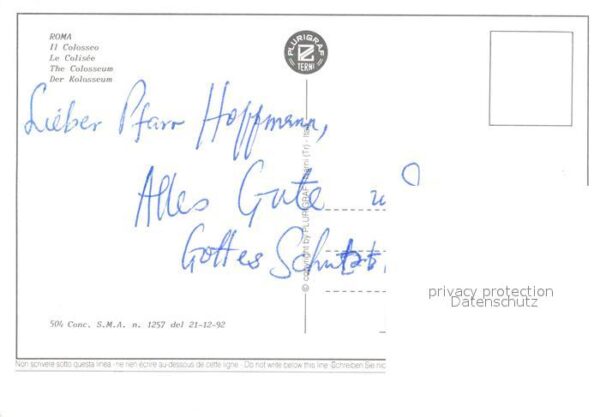 ROMA
Il Colosseo
Le Colisée
The Colosseum
Der Kolosseum
PLURIGRAF
TERNI
Lieber Pfarr Hoffmann,
Alles Gute u
Gottes Schutz
© copyright by PLURIGRAF Terni (Tr) - It
privacy protection
Datenschutz
504 Conc. S.M.A. n. 1257 del 21-12-92
Non scrivere sotto questa linea - ne rien écrire au-dessous de cette ligne - Do not write below this line - Schreiben Sie nic